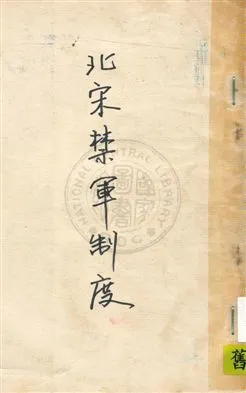 北宋禁軍制度
NATIONAL CENTRAL LIBRARY
舊